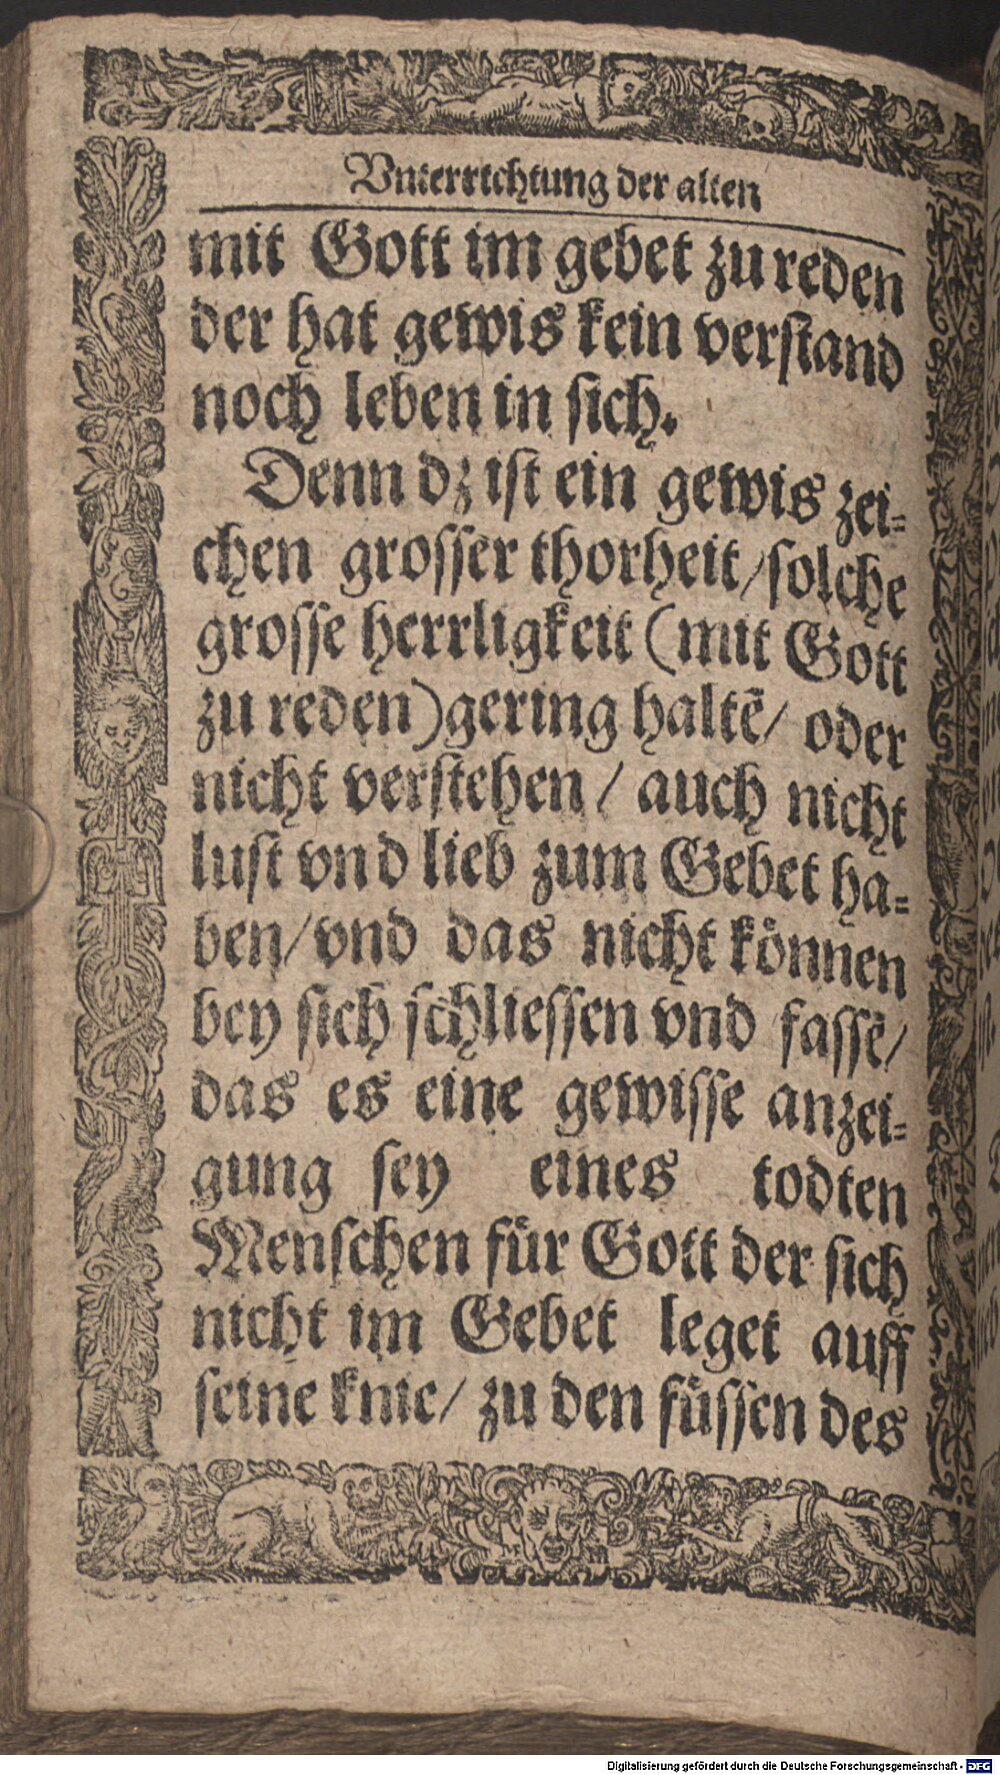 Vnterrichtung der alten
mit Gott im gebet zu reden
der hat gewis kein verstand
noch leben in sich.
Denn dz ist ein gewis zei-
chen grosser thorheit/solche
grosse herrligkeit (mit Gott
zu reden) gering haltē/ oder
nicht verstehen / auch nicht
lust vnd lieb zum Gebet ha-
ben/vnd das nicht können
bey sich schliessen vnd fassē/
das es eine gewisse anzei-
gung sey eines todten
Menschen für Gott der sich
nicht im Gebet leget auff
seine knie/ zu den füssen des
Digitalisierung gefördert durch die Deutsche Forschungsgemeinschaft - DFG